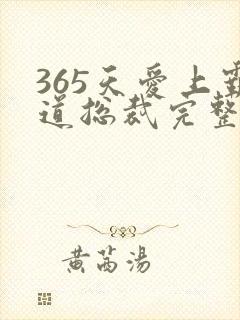 365天爱上霸
道总裁完整
黄芮汤